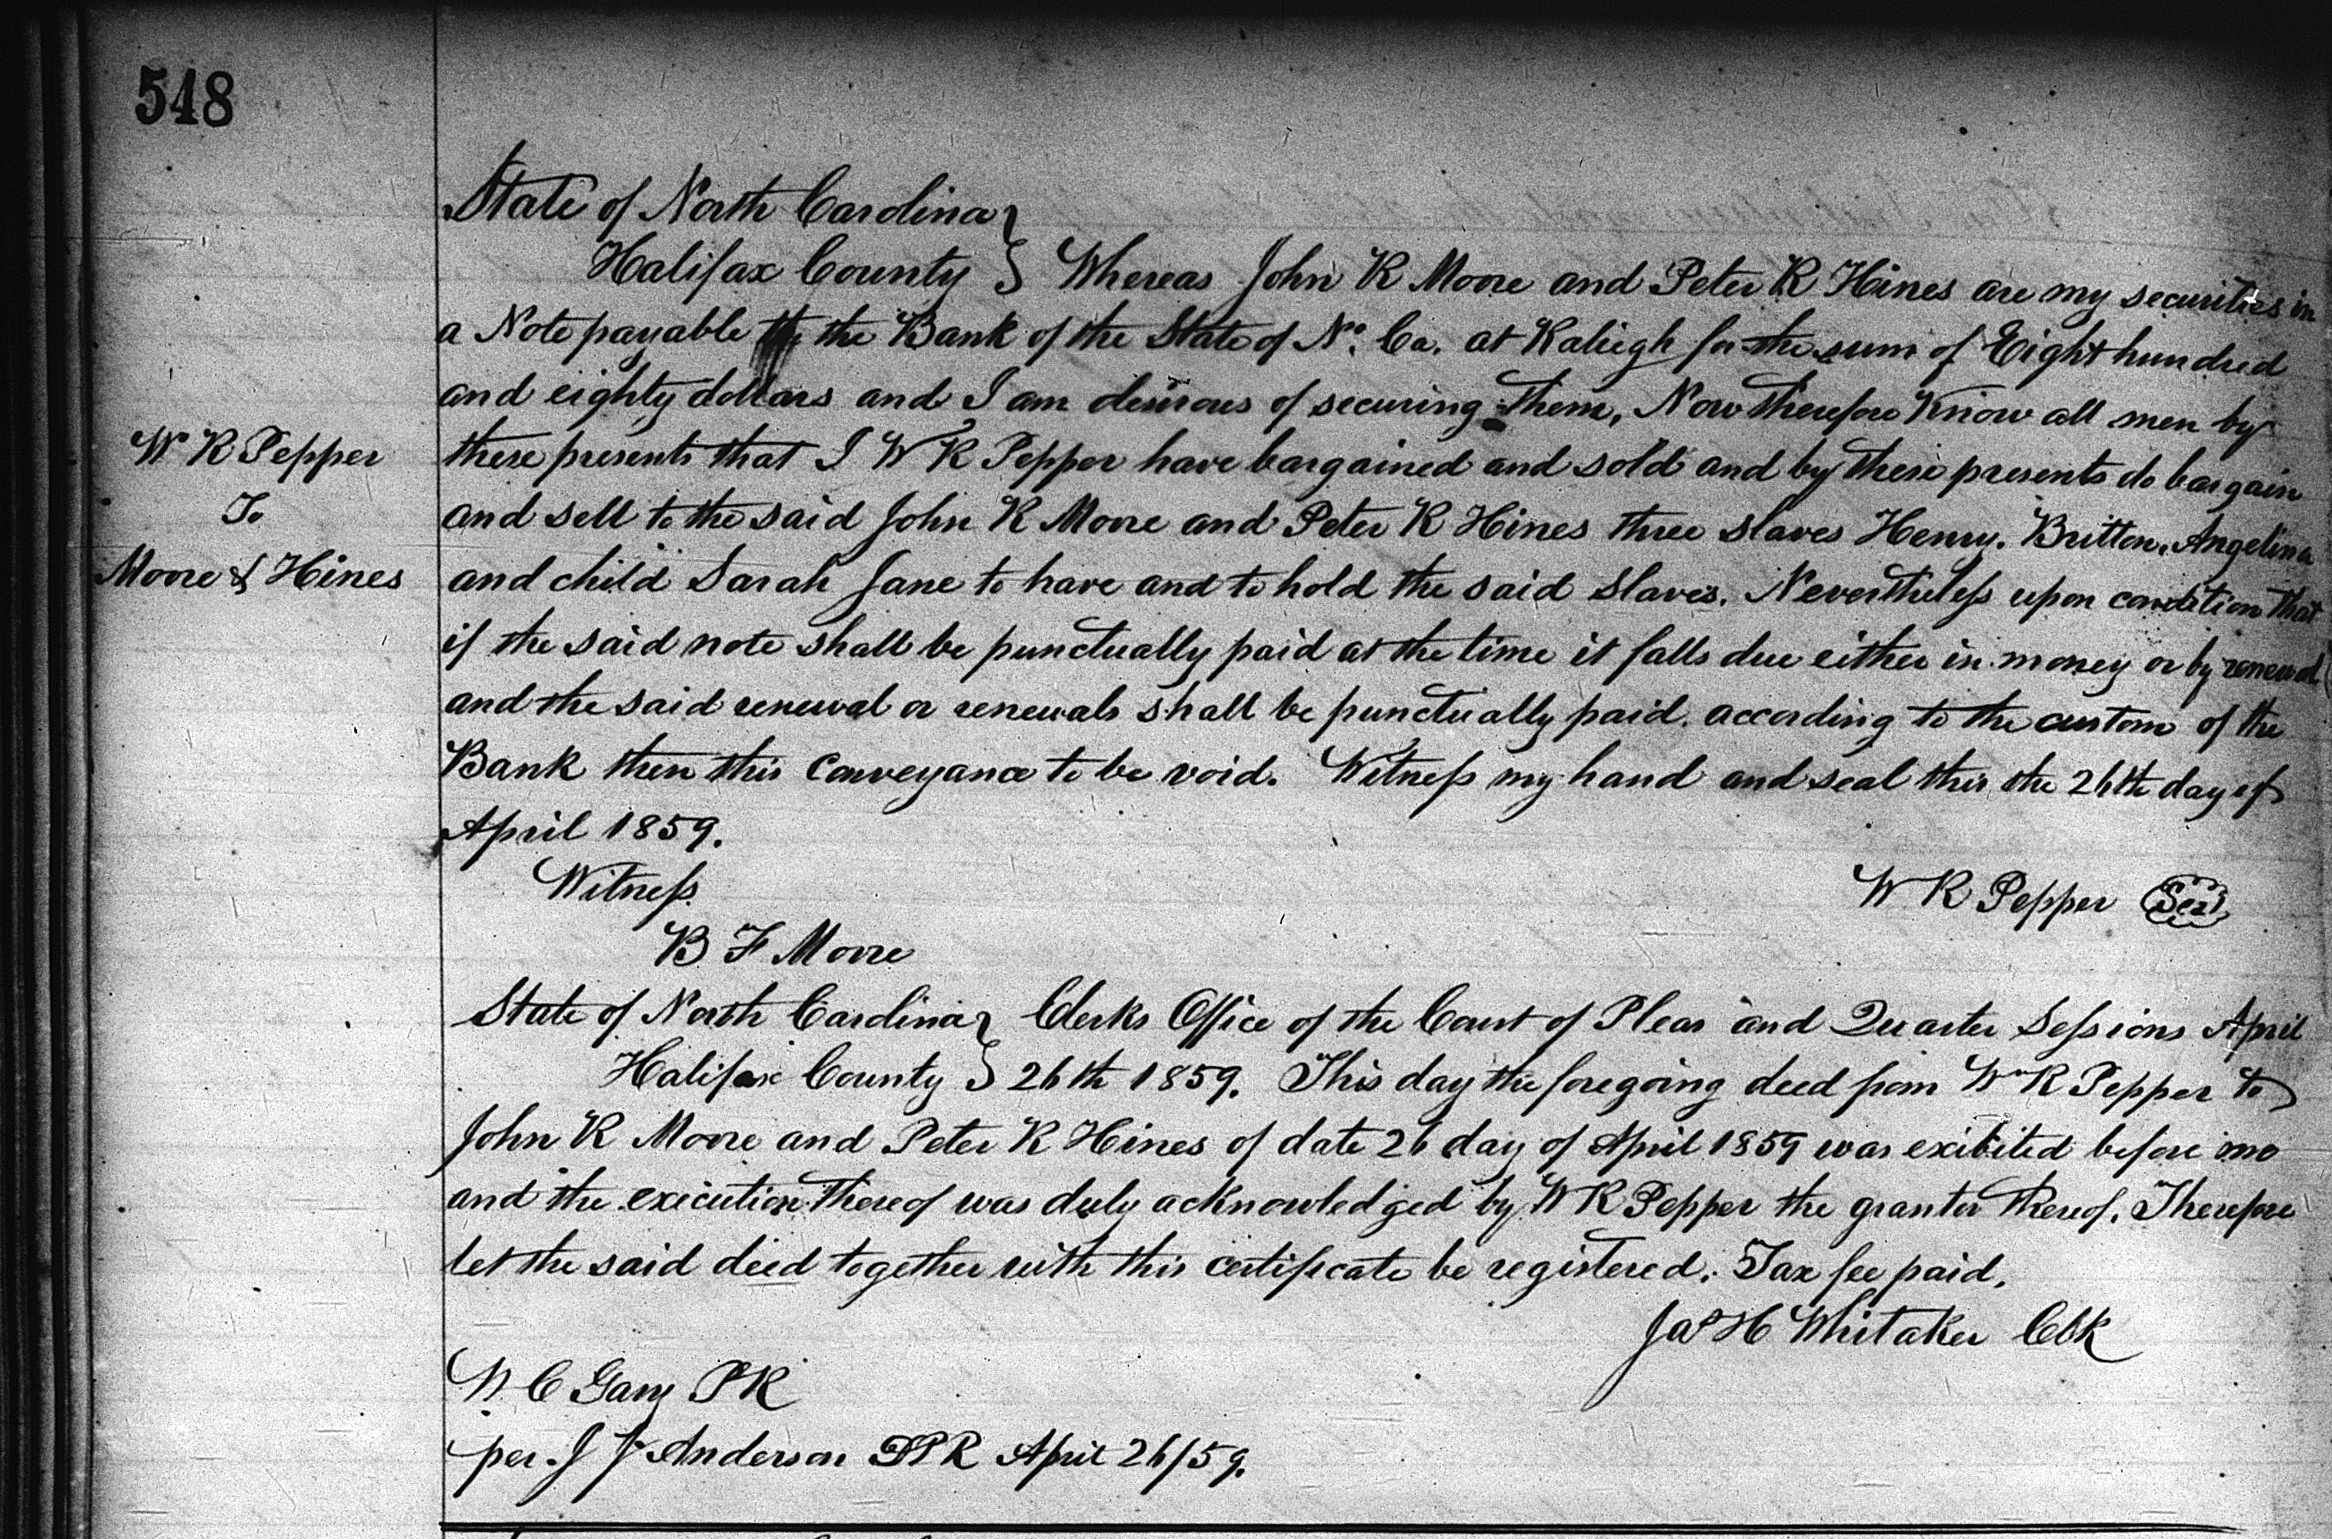 548
State of North Carolina
Halifax County } Whereas John R Moore and Peter R Hines are my securities in
a Note payable to the Bank of the State of No. Ca. at Raliegh for the sum of Eight hundred
and eighty dollars and I am desirous of securing them, Now therefore Know all men by
these presents that I W R Pepper have bargained and sold and by these presents do bargain
and sell to the said John R Moore and Peter R Hines three slaves Henry. Britton. Angelina
and child Sarah Jane to have and to hold the said slaves. Nevertheless upon condition that
if the said note shall be punctually paid at the time it falls due either in money or by renewal
and the said renewal or renewals shall be punctually paid. according to the custom of the
Bank then this Conveyance to be void. Witness my hand and seal this the 26th day of
April 1859.
W R Pepper
To
Moore & Hines
Witness
W R Pepper Seal
B F Moore
State of North Carolina } Clerks Office of the Court of Pleas and Quarter Sessions April
Halifax County } 26th 1859. This day the foregoing deed from Wm R Pepper to
John R Moore and Peter R Hines of date 26 day of April 1859 was exibited before me
and the execution thereof was duly acknowledged by W R Pepper the grantor thereof. Therefore
let the said deed together with this certificate be registered. Tax fee paid.
Jas H Whitaker Clk
N C Gary P R
per. J J Anderson D P R April 26/59.